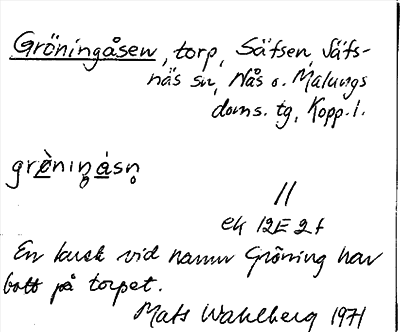 Gröningåsen, torp, Säfsen, Säfs-
näs sn, Nås o. Malungs
doms. tg, Kopp. l.
grö̀niŋåsn̥
//
ek 12E 2f
En kusk vid namn Gröning har
bott på torpet.
Mats Wahlberg 1971